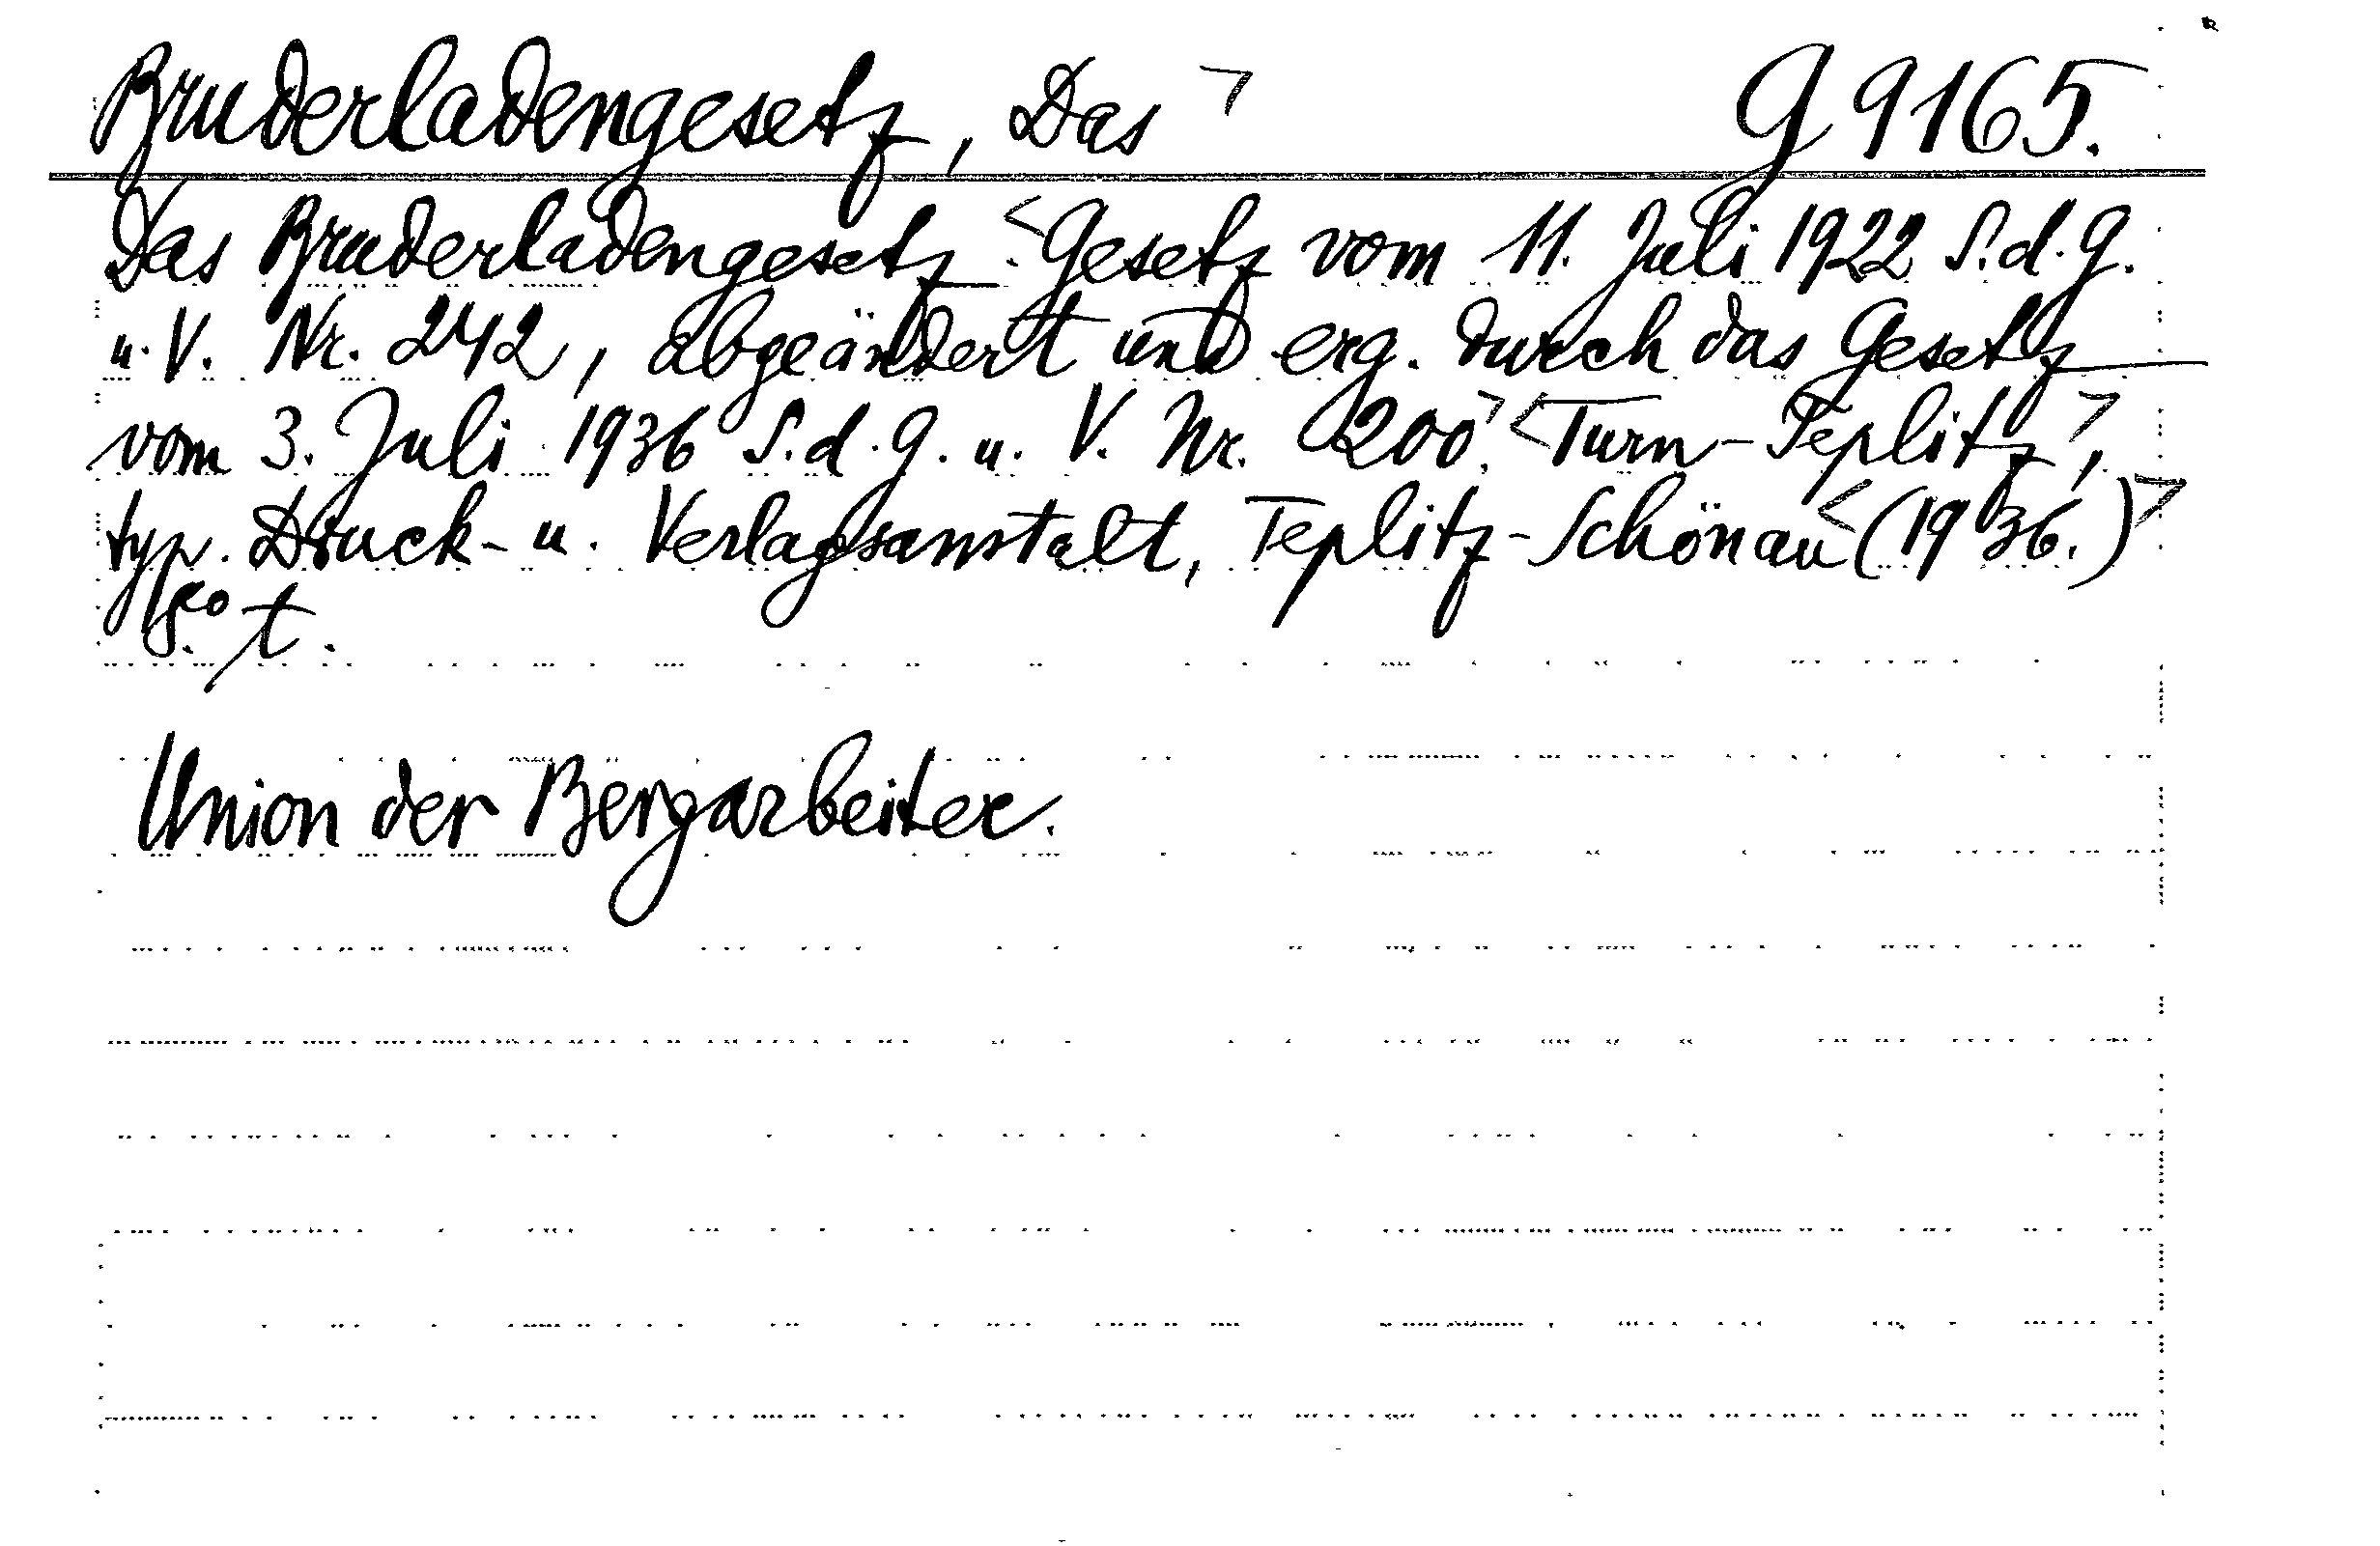 Bruderladengesetz, Das > G 9165.
Das Bruderladengesetz. <Gesetz vom 11. Juli 1922 S.d.G.
u. V. Nr. 242, abgeändert und erg. durch das Gesetz
vom 3. Juli 1936 S.d.G. u. V. Nr. 200.> <Turn-Teplitz>,
typ. Druck- u. Verlagsanstalt, Teplitz-Schönau <(1936.)>
8° t.
Union der Bergarbeiter.